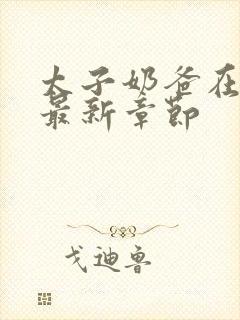 太子奶爸在
最新章节
戈迪鲁